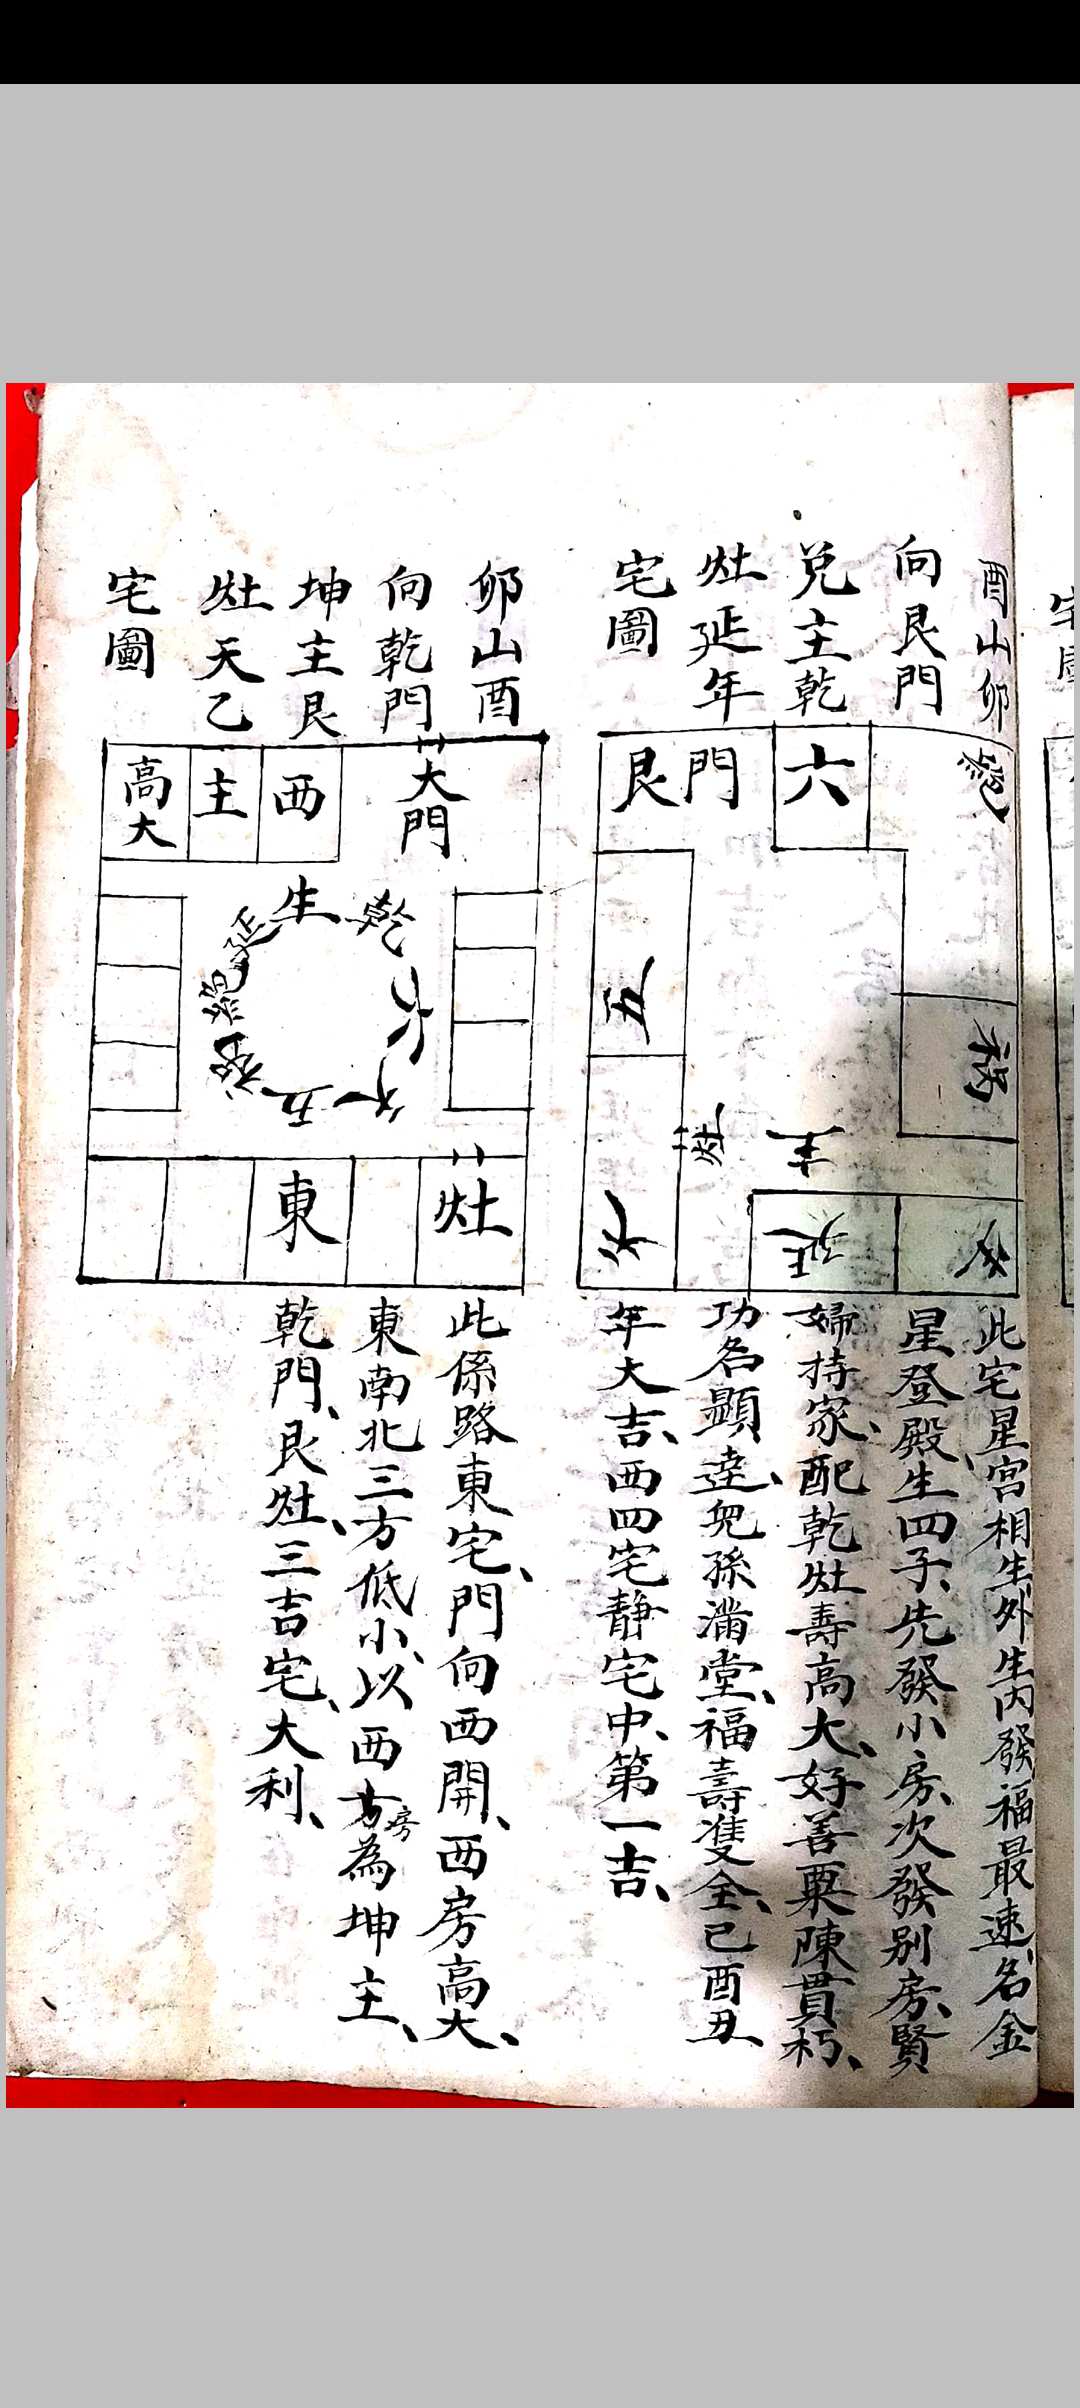 宅圖
酉山卯
向艮門
兌主乾
灶延年
宅圖
絕
六
艮門
禍
五
灶
主
六
延
此宅星宮相生、外生內發福最速、名金
星登殿、生四子、先發小房、次發別房、賢
婦持家、配乾灶壽高大、好善粟陳貫朽、
功名顯達、兒孫滿堂、福壽雙全、己酉丑
年大吉、西四宅靜宅中、第一吉、
卯山酉
向乾門
坤主艮
灶天乙
宅圖
大門
西
主
高大
生
延
絕
禍
五
天
六
乾
灶
東
此係路東宅、門向西開、西房高大、
東南北三方低小、以西方房為坤主、
乾門、艮灶、三吉宅、大利、